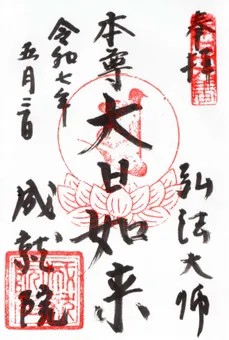 奉拝
弘法大師
本尊
大日如来
令和七年
五月三日
成就院